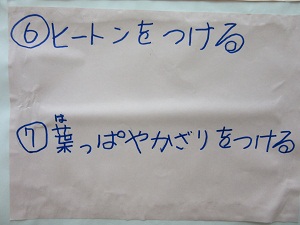 ⑥ヒートンをつける
は
⑦葉っぱやかざりをつける